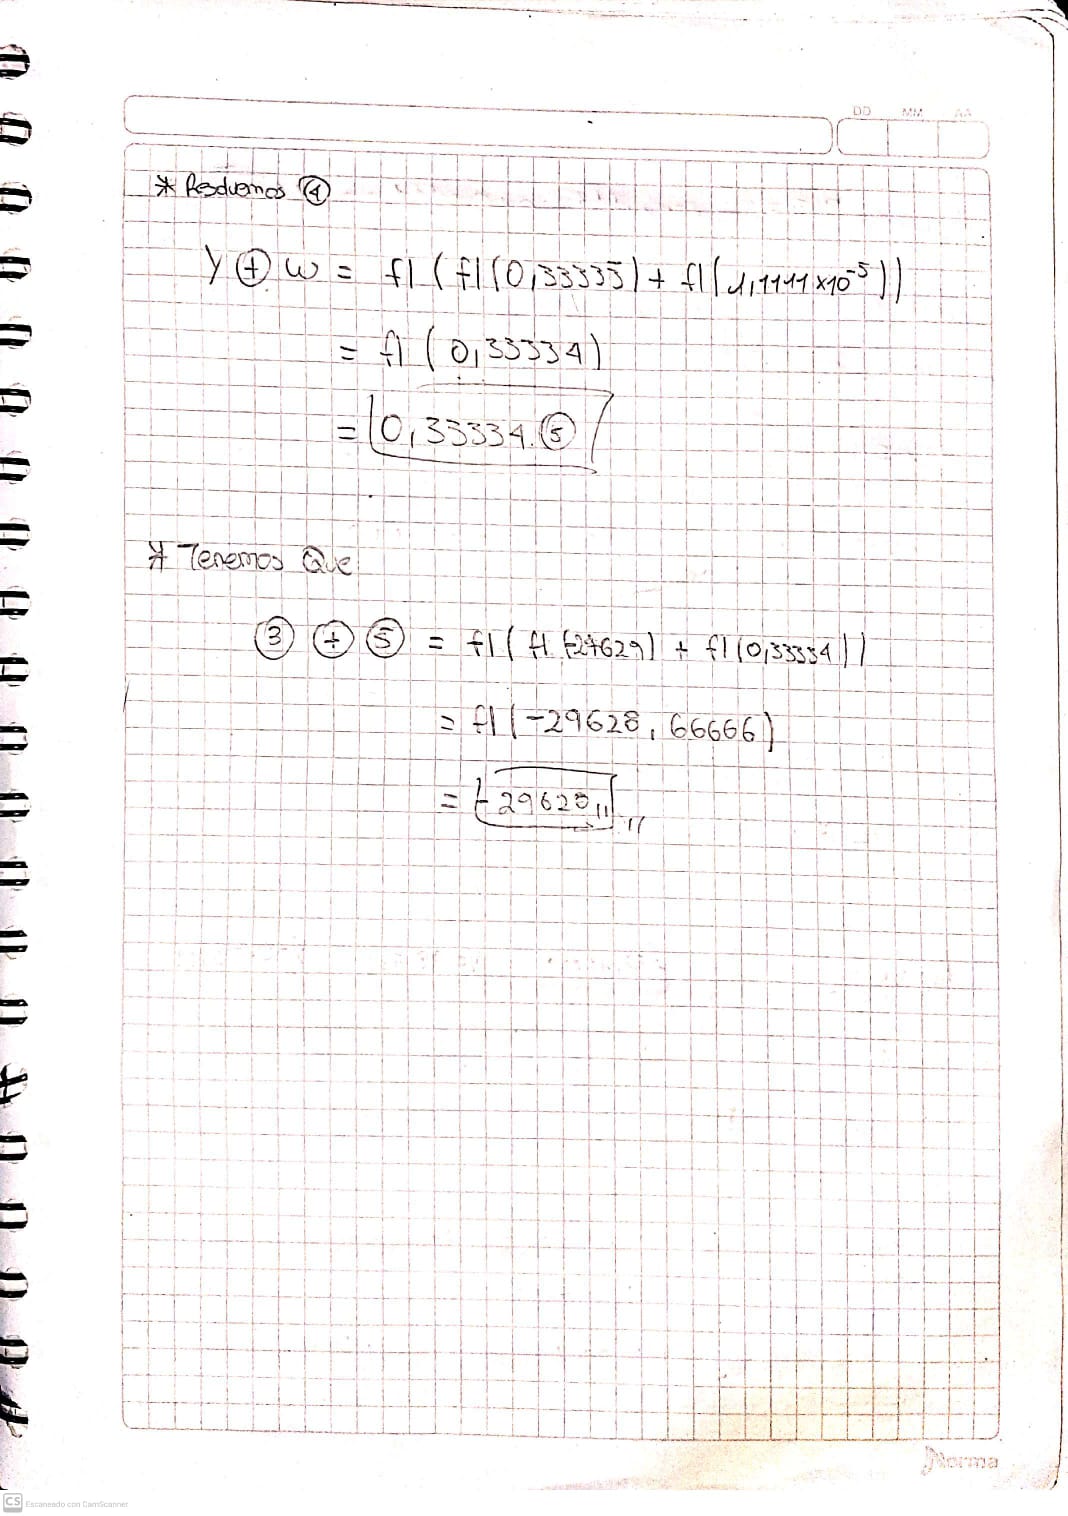 DD MM AA
* Resolvemos ④
y ⊕ w = fl ( fl (0,33333) + fl (1,1111 x10^-5))
= fl (0,33334)
= 0,33334. ⑤
* Tenemos Que
③ ⊕ ⑤ = fl ( fl (-29629) + fl (0,33334))
= fl (-29628, 66666)
= -29628,,
Norma
CS Escaneado con CamScanner